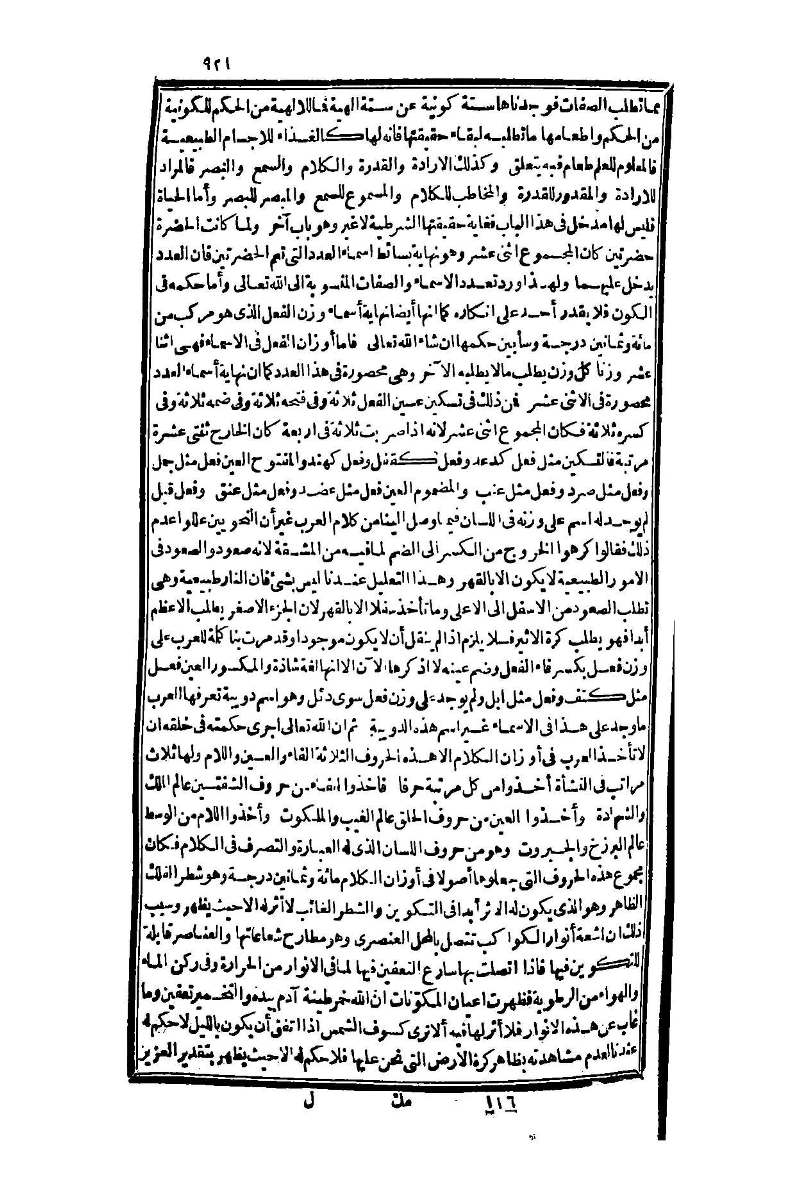 ٩٢١
مما تطلب الصفات فوجدناها ستة كونية عن ستة الهية فاللالهية من الحكم للكونية
من الحكم واطعامها ما تطلبه لبقاء حقيقتها فانه لها كالغذاء للاجسام الطبيعية
فالمعلوم للعلم طعام فبه يتعلق وكذلك الارادة والقدرة والكلام والسمع والبصر فالمراد
للارادة والمقدور للقدرة والمخاطب للكلام والمسموع للسمع والمبصر للبصر وأما الحياة
فليس لها مدخل فى هذا الباب فغاية حقيقتها الشرطية لا غير وهو باب آخر ولما كانت الحضرة
حضرتين كان المجموع اثنى عشر وهو نهاية بسائط اسماء العدد التى تعم الحضرتين فان العدد
يدخل عليهما ولهذا ورد تعدد الاسماء والصفات المنسوبة الى الله تعالى وأما حكمه فى
الكون فلا يقدر أحد على انكاره كما انها أيضا نهاية أسماء وزن الفعل الذى هو مركب من
مائة وثمانين درجة وسأبين حكمها ان شاء الله تعالى فاما أوزان الفعل فى الاسماء فهى اثنا
عشر وزنا كل وزن يطلب ما لا يطلبه الآخر وهى محصورة فى هذا العدد كما ان نهاية أسماء العدد
محصورة فى الاثنى عشر فن ذلك فى تسكين عين الفعل ثلاثة وفى فتحه ثلاثة وفى ضمه ثلاثة وفى
كسره ثلاثة فكان المجموع اثنى عشر لانه اذا ضربت ثلاثة فى اربعة كان الخارج ثنتى عشرة
مرتبة فالتسكين مثل فعل كدعد وفعل كقفل وفعل كهند والمفتوح العين فعل مثل جمل
وفعل مثل صرد وفعل مثل عنب والمضموم العين فعل مثل عضد وفعل مثل عنق وفعل قيل
لم يوجد له اسم على وزنه فى اللسان فيما وصل الينا من كلام العرب غير أن النحويين عللوا عدم
ذلك فقالوا كرهوا الخروج من الكسر الى الضم لما فيه من المشقة لانه صعود والصعود فى
الامور الطبيعية لا يكون الا بالقهر وهذا التعليل عندنا ليس بشئ فان النار طبيعية وهى
تطلب الصعود من الاسفل الى الاعلى وما تأخذ سفلا الا بالقهر لان الجزء الاصغر يطلب الاعظم
أبدا فهو يطلب كرة الاثير فلا يلزم اذا لم ينقل أن لا يكون موجودا وقد مرت بنا كلمة للعرب على
وزن فعل بكسر فاء الفعل وضم عينه لا اذكرها الآن الا انها لغة شاذة والمكسور العين فعل
مثل كتف وفعل مثل ابل ولم يوجد على وزن فعل سوى دئل وهو اسم دويبة تعرفها العرب
ما وجد على هذا فى الاسماء غير اسم هذه الدويبة ثم ان الله تعالى اجرى حكمته فى خلقه ان
لا تأخذ العرب فى أوزان الكلام الا هذه الحروف الثلاثة الفاء والعين واللام ولها ثلاث
مراتب فى النشأة أخذوا من كل مرتبة حرفا فاخذوا الفاء من حروف الشفتين عالم الملك
والشهادة وأخذوا العين من حروف الحلق عالم الغيب والملكوت وأخذوا اللام من الوسط
عالم البرزخ والجبروت وهو من حروف اللسان الذى له العبارة والتصرف فى الكلام فكان
مجموع هذه الحروف التى جعلوها أصولا فى أوزان الكلام مائة وثمانين درجة وهو شطر الفلك
الظاهر وهو الذى يكون له الاثر أبدا فى التكوين والشطر الغائب لا أثر له الا حيث يظهر وسبب
ذلك ان اشعة أنوار الكواكب تتصل بالمحل العنصرى وهو مطارح شعاعاتها والعناصر قابلة
للتكوين فيها فاذا اتصلت بها سارع التعفين فيها لما فى الانوار من الحرارة وفى ركن الماء
والهواء من الرطوبة فظهرت اعيان المكونات ان الله خمر طينة آدم بيده والتخمير تعفين وما
غاب عن هذه الانوار فلا أثر لها فيه ألا ترى كسوف الشمس اذا اتفق أن يكون بالليل لا حكم له
عندنا لعدم مشاهدته بظاهر كرة الارض التى نحن عليها فلا حكم له الا حيث يظهر بتقدير العزيز
١١٦ مك ل